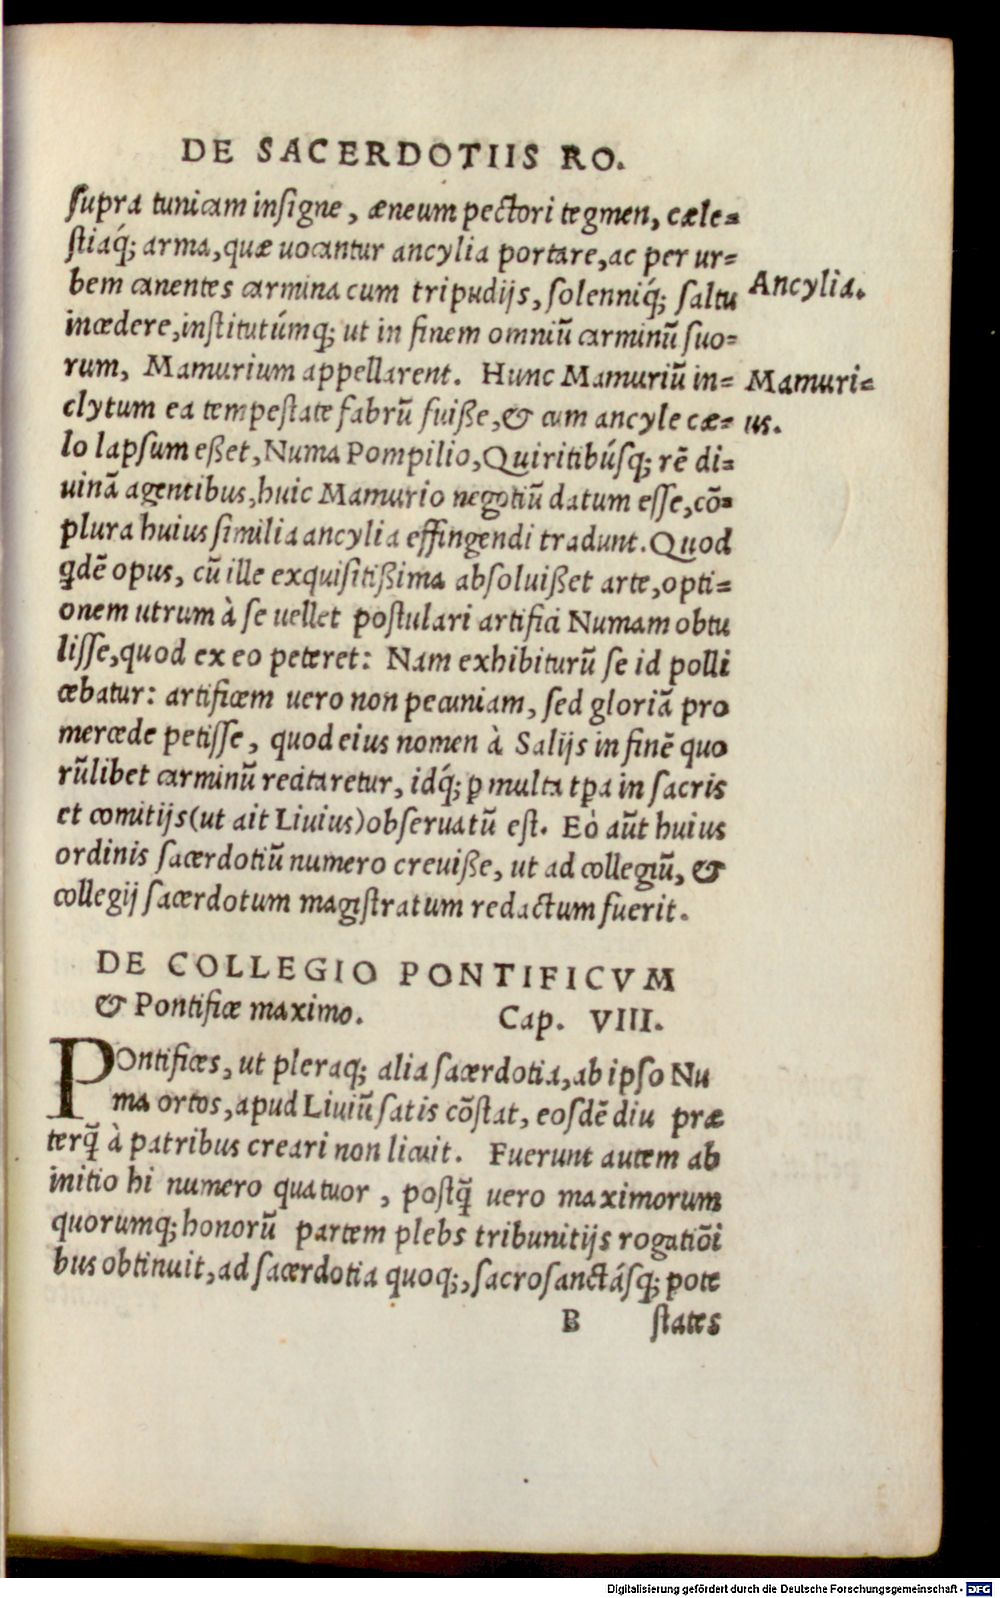 DE SACERDOTIIS RO.
ſupra tunicam inſigne, æneum pectori tegmen, cæle=
ſtiaq́; arma, quæ uocantur ancylia portare, ac per ur=
bem canentes carmina cum tripudijs, ſolenniq́; ſaltu
Ancylia.
incedere, inſtitutúmq; ut in finem omniū carminū ſuo=
rum, Mamurium appellarent. Hunc Mamuriū in=
Mamuri=
clytum ea tempeſtate fabrū fuiße, & cum ancyle cæ=
us.
lo lapſum eßet, Numa Pompilio, Quiritibúſq; rē di=
uinā agentibus, huic Mamurio negotiū datum eſſe, cō=
plura huius ſimilia ancylia effingendi tradunt. Quod
qdē opus, cū ille exquiſitißima abſoluißet arte, opti=
onem utrum à ſe uellet poſtulari artifici Numam obtu
liſſe, quod ex eo peteret: Nam exhibiturū ſe id polli
cebatur: artificem uero non pecuniam, ſed gloriā pro
mercede petiſſe, quod eius nomen à Salijs in finē quo
rūlibet carminū recitaretur, idq́; ꝑ multa tꝑa in ſacris
et comitijs (ut ait Liuius) obſeruatū eſt. Eò aūt huius
ordinis ſacerdotiū numero creuiße, ut ad collegiū, &
collegij ſacerdotum magiſtratum redactum fuerit.
DE COLLEGIO PONTIFICVM
& Pontifice maximo. Cap. VIII.
POntifices, ut pleraq; alia ſacerdotia, ab ipſo Nu
ma ortos, apud Liuiū ſatis cōſtat, eoſdē diu præ
terq̄ à patribus creari non licuit. Fuerunt autem ab
initio hi numero quatuor, poſtq̄ uero maximorum
quorumq; honorū partem plebs tribunitijs rogatiōi
bus obtinuit, ad ſacerdotia quoq;, ſacroſanctáſq; pote
B ſtates
Digitalisierung gefördert durch die Deutsche Forschungsgemeinschaft - DFG